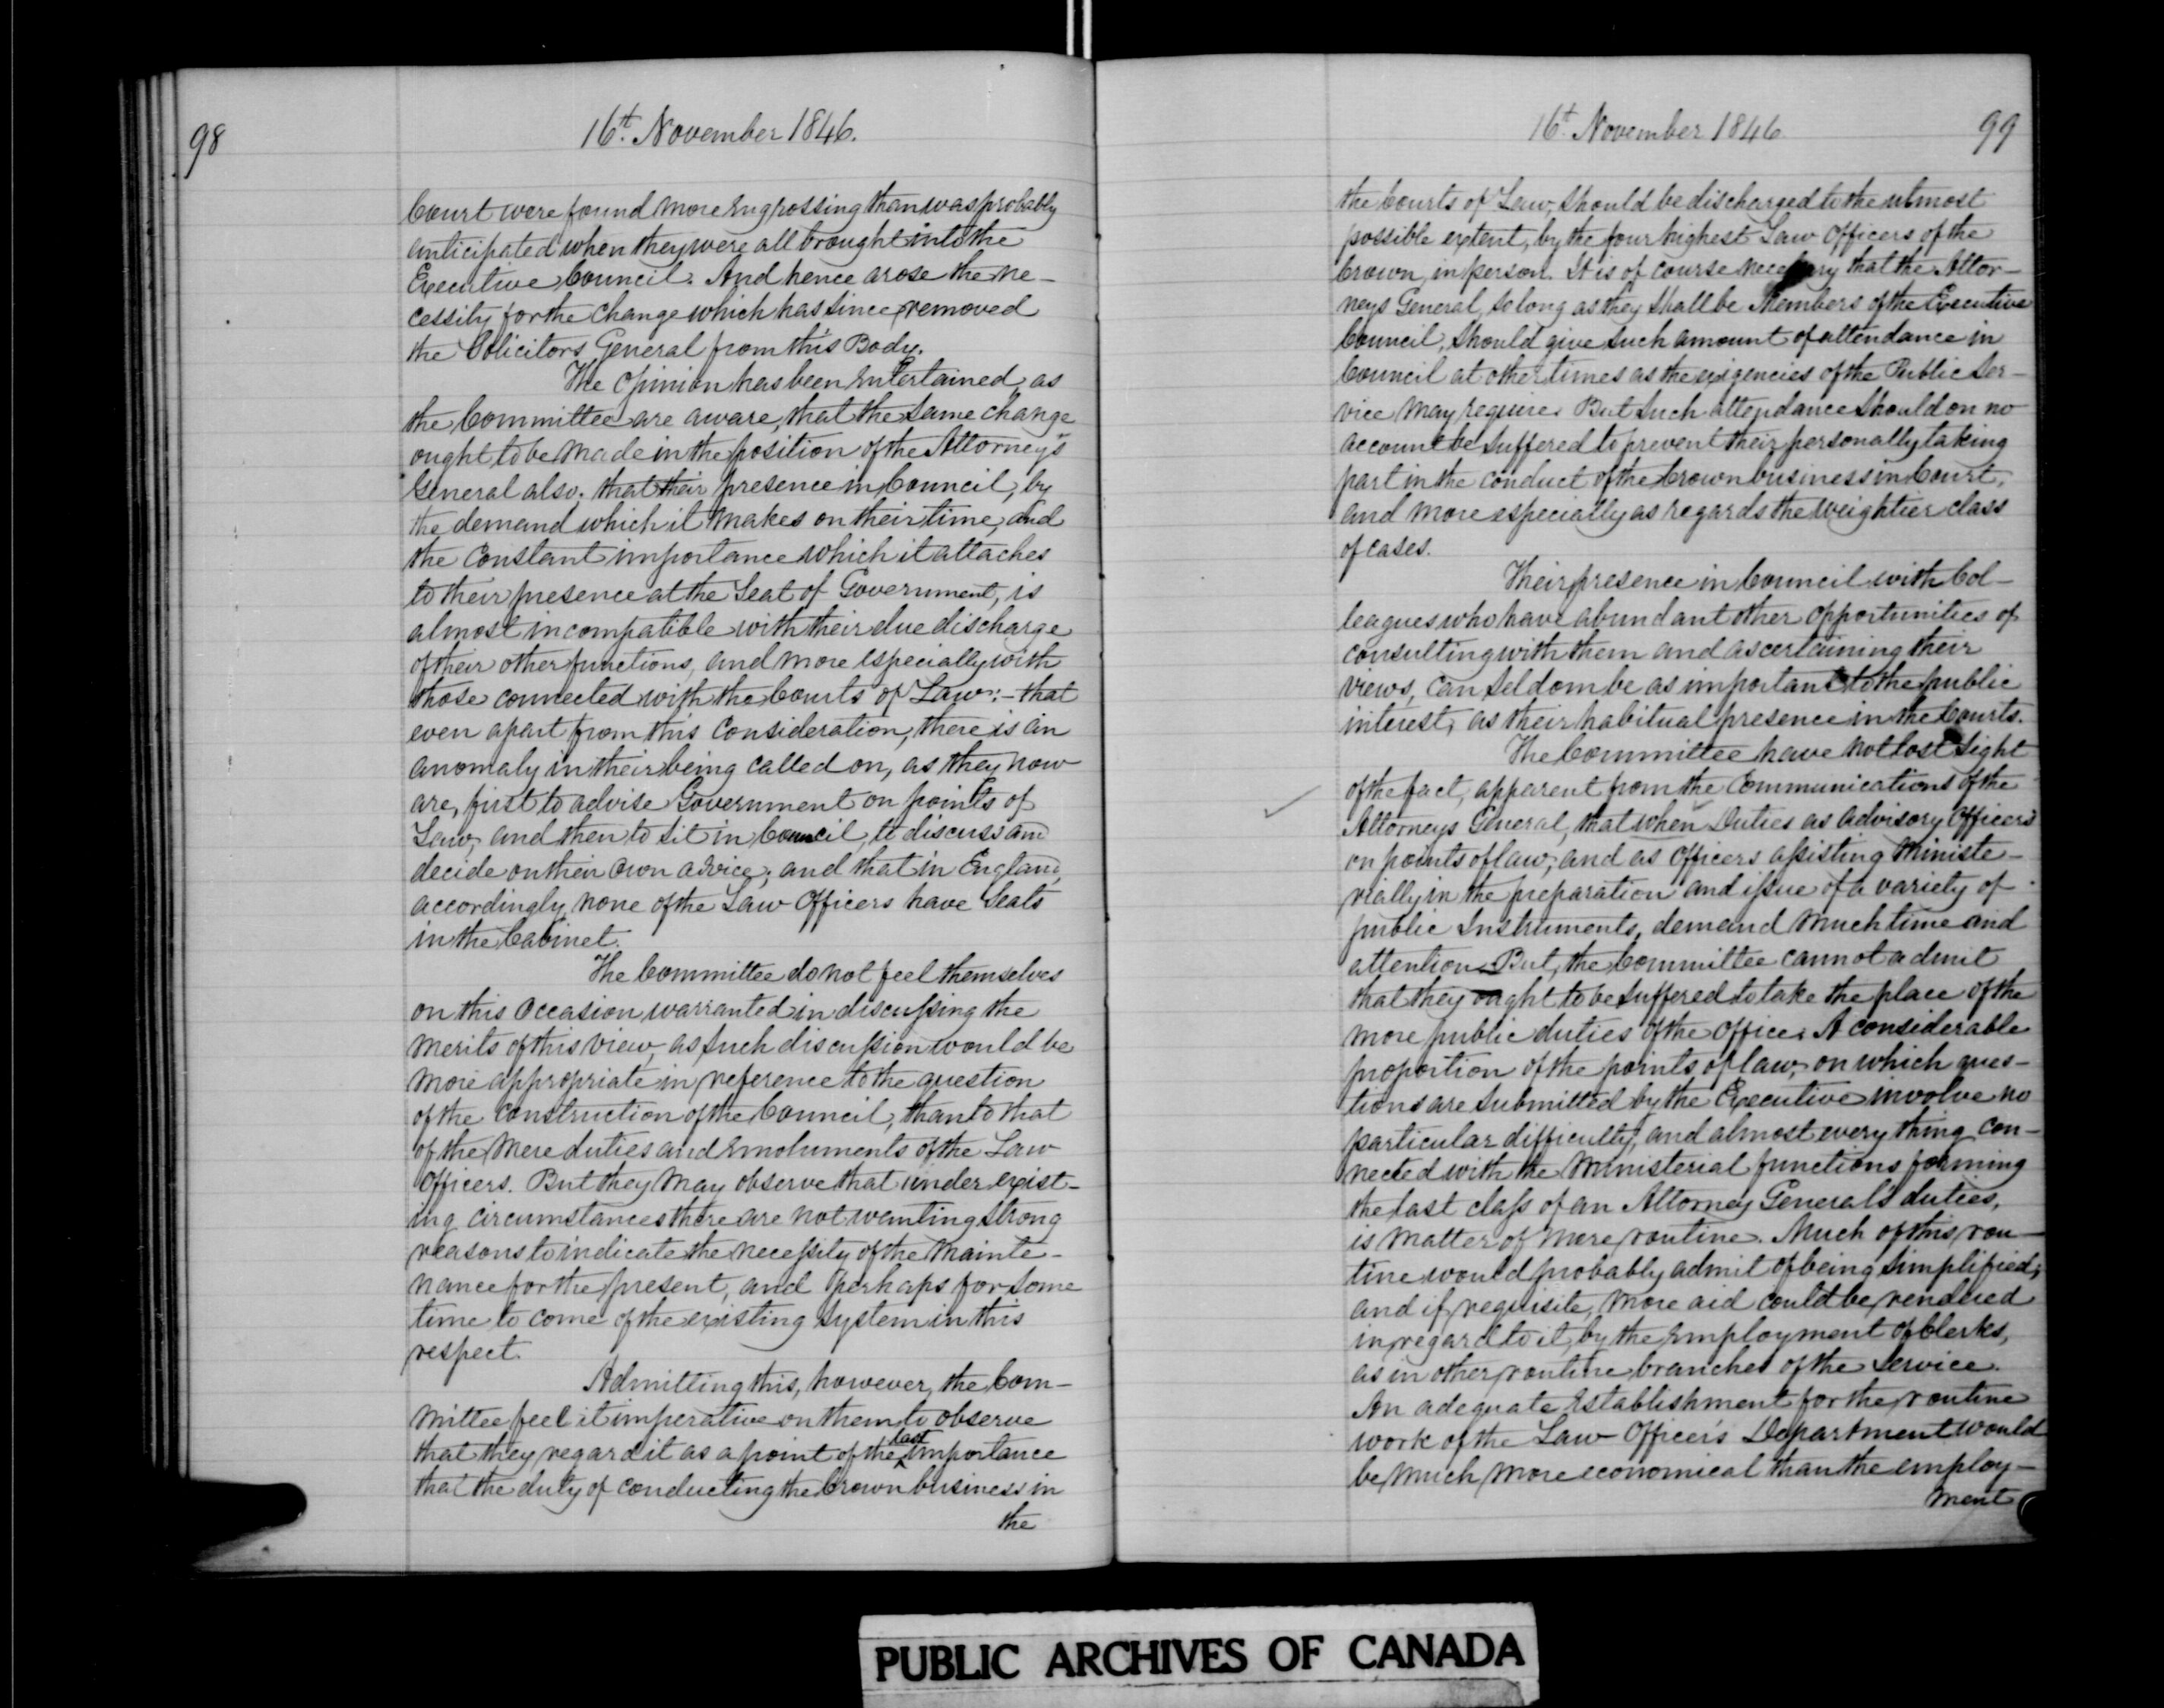 98
16th. November 1846.
Court were found more engrossing than was probably
anticipated when they were all brought into the
Executive Council. And hence arose the ne-
cessity for the change which has since removed
the Solicitors General from this Body.
The opinion has been entertained, as
the Committee are aware, that the same change
ought to be made in the position of the Attorney's
General also; that their presence in Council, by
the demand which it makes on their time, and
the constant importance which it attaches
to their presence at the Seat of Government, is
almost incompatible with their due discharge
of their other functions, and more especially with
those connected with the Courts of Law:- that
even apart from this consideration, there is an
anomaly in their being called on, as they now
are, first to advise Government on points of
Law, and then to sit in Council, to discuss and
decide on their own advice; and that in England,
accordingly, none of the Law Officers have Seats
in the Cabinet.
The Committee do not feel themselves
on this occasion warranted in discussing the
merits of this view, as such discussion would be
more appropriate in reference to the question
of the construction of the Council, than to that
of the mere duties and emoluments of the Law
Officers. But they may observe that under exist-
ing circumstances there are not wanting strong
reasons to indicate the necessity of the mainte-
nance for the present, and perhaps for some
time to come of the existing system in this
respect.
Admitting this, however, the Com-
mittee feel it imperative on them to observe
that they regard it as a point of the last importance
that the duty of conducting the Crown business in
the
16t. November 1846
99
the Courts of Law, should be discharged to the utmost
possible extent, by the four highest Law Officers of the
Crown, in person. It is of course necessary that the Attor-
neys General, so long as they shall be Members of the Executive
Council, should give such amount of attendance in
Council at other times as the exigencies of the Public Ser-
vice may require. But such attendance should on no
account be suffered to prevent their personally taking
part in the conduct of the Crown business in Court,
and more especially as regards the weightier class
of cases.
Their presence in Council with Col-
leagues who have abundant other opportunities of
consulting with them and ascertaining their
views, can seldom be as important to the public
interest, as their habitual presence in the Courts.
The Committee have not lost sight
of the fact, apparent from the Communications of the
Attorneys General, that when Duties as advisory Officers
on points of law, and as Officers assisting Ministe-
rially in the preparation and issue of a variety of
public Instruments, demand much time and
attention. But, the Committee cannot admit
that they ought to be suffered to take the place of the
more public duties of the Office. A considerable
proportion of the points of law, on which ques-
tions are submitted by the Executive involve no
particular difficulty, and almost every thing con-
nected with the Ministerial functions forming
the last class of an Attorney General's duties,
is matter of mere routine. Much of this rou-
tine would probably admit of being simplified;
and if requisite, more aid could be rendered
in regard to it, by the employment of Clerks,
as in other routine branches of the Service.
An adequate Establishment for the routine
work of the Law Officer's Department would
be much more economical than the employ-
ment
PUBLIC ARCHIVES OF CANADA